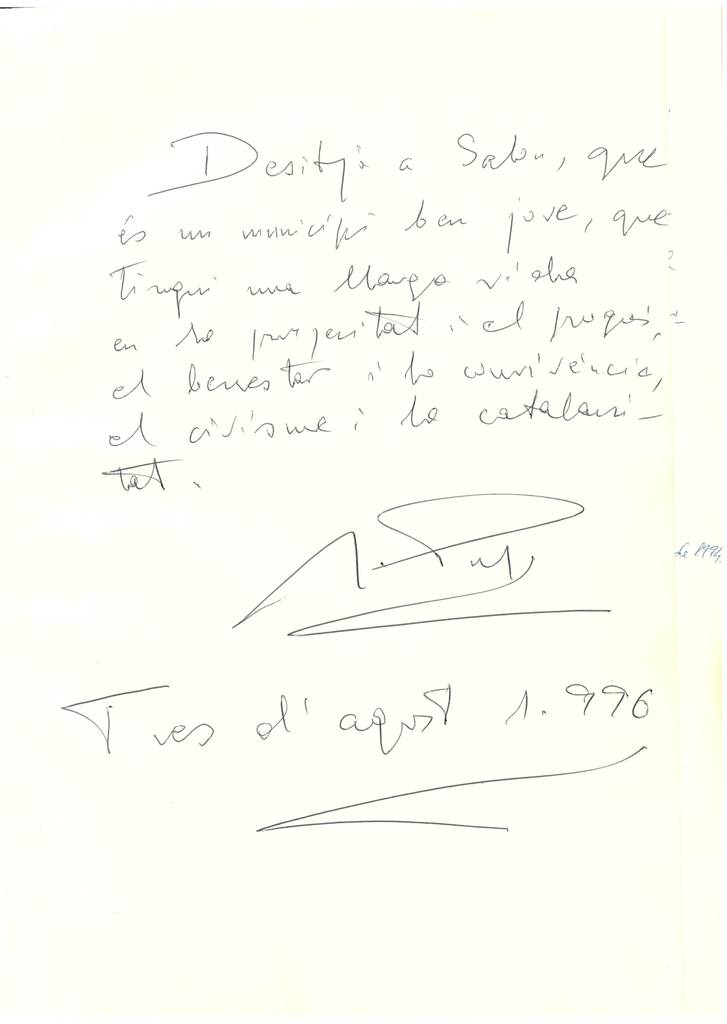 Desitjo a Salou, que
és un municipi ben jove, que
tingui una llarga vida
en la prosperitat i el progrés,
el benestar i la convivència,
el civisme i la catalani-
tat.
J. Pujol
Tres d'agost 1.996
de 1994.